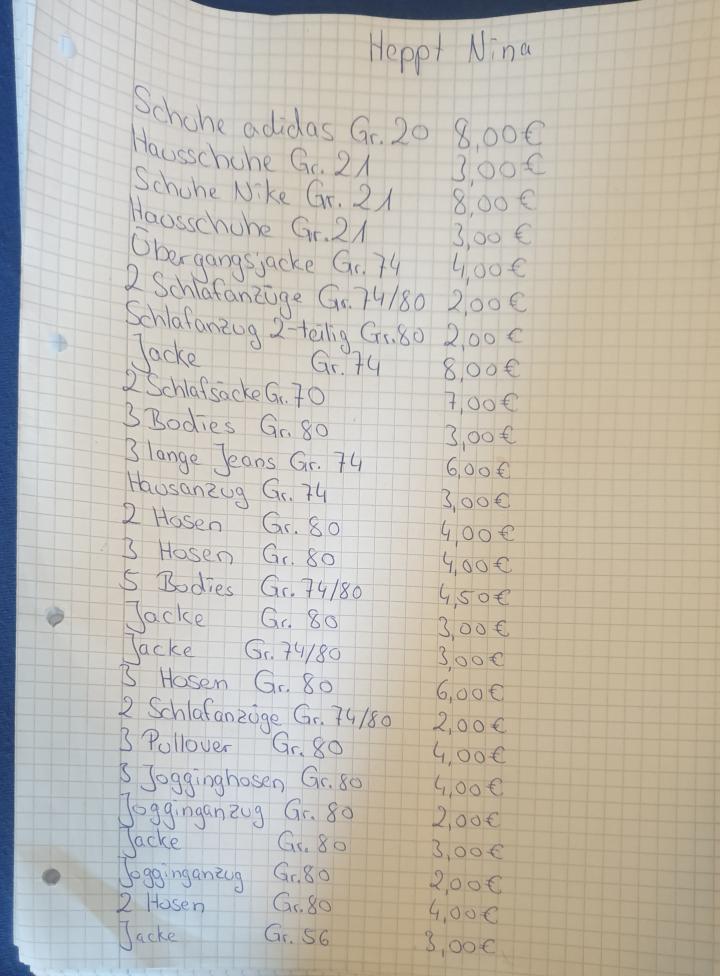 Heppt Nina
Schuhe adidas Gr. 20 8,00€
Hausschuhe Gr. 21 3,00€
Schuhe Nike Gr. 21 8,00€
Hausschuhe Gr. 21 3,00€
Übergangsjacke Gr. 74 4,00€
2 Schlafanzüge Gr. 74/80 2,00€
Schlafanzug 2-teilig Gr. 80 2,00€
Jacke Gr. 74 8,00€
2 Schlafsäcke Gr. 70 7,00€
3 Bodies Gr. 80 3,00€
3 lange Jeans Gr. 74 6,00€
Hausanzug Gr. 74 3,00€
2 Hosen Gr. 80 4,00€
3 Hosen Gr. 80 4,00€
5 Bodies Gr. 74/80 4,50€
Jacke Gr. 80 3,00€
Jacke Gr. 74/80 3,00€
3 Hosen Gr. 80 6,00€
2 Schlafanzüge Gr. 74/80 2,00€
3 Pullover Gr. 80 4,00€
3 Jogginghosen Gr. 80 4,00€
Jogginganzug Gr. 80 2,00€
Jacke Gr. 80 3,00€
Jogginganzug Gr. 80 2,00€
2 Hosen Gr. 80 4,00€
Jacke Gr. 56 3,00€